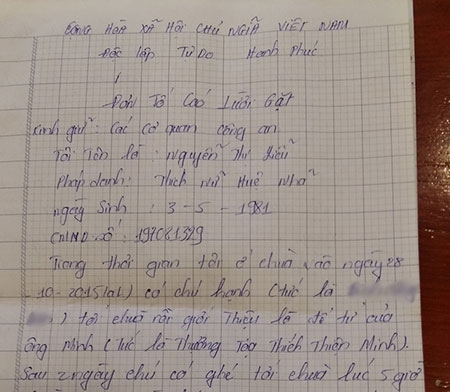 CỘNG HOÀ XÃ HỘI CHỦ NGHĨA VIỆT NAM
Độc lập Tự Do Hạnh Phúc
Đơn Tố Cáo Lừa Gạt
Kính gửi : Các cơ quan công an
Tôi Tên là : Nguyễn Thị Hiếu
Pháp danh : Thích Nữ Huệ Nhã
ngày Sinh : 3 - 5 - 1981
CMND Số : 197081329
Trong thời gian tôi ở chùa vào ngày 28
- 10 - 2015 (aL) có chú hạnh (tức là
) tới chùa rồi giới Thiệu là đệ tử của
ông Minh (tức là Thượng Tọa Thích Thiện Minh).
Sau 2 ngày chú có ghé tới chùa lúc 5 giờ